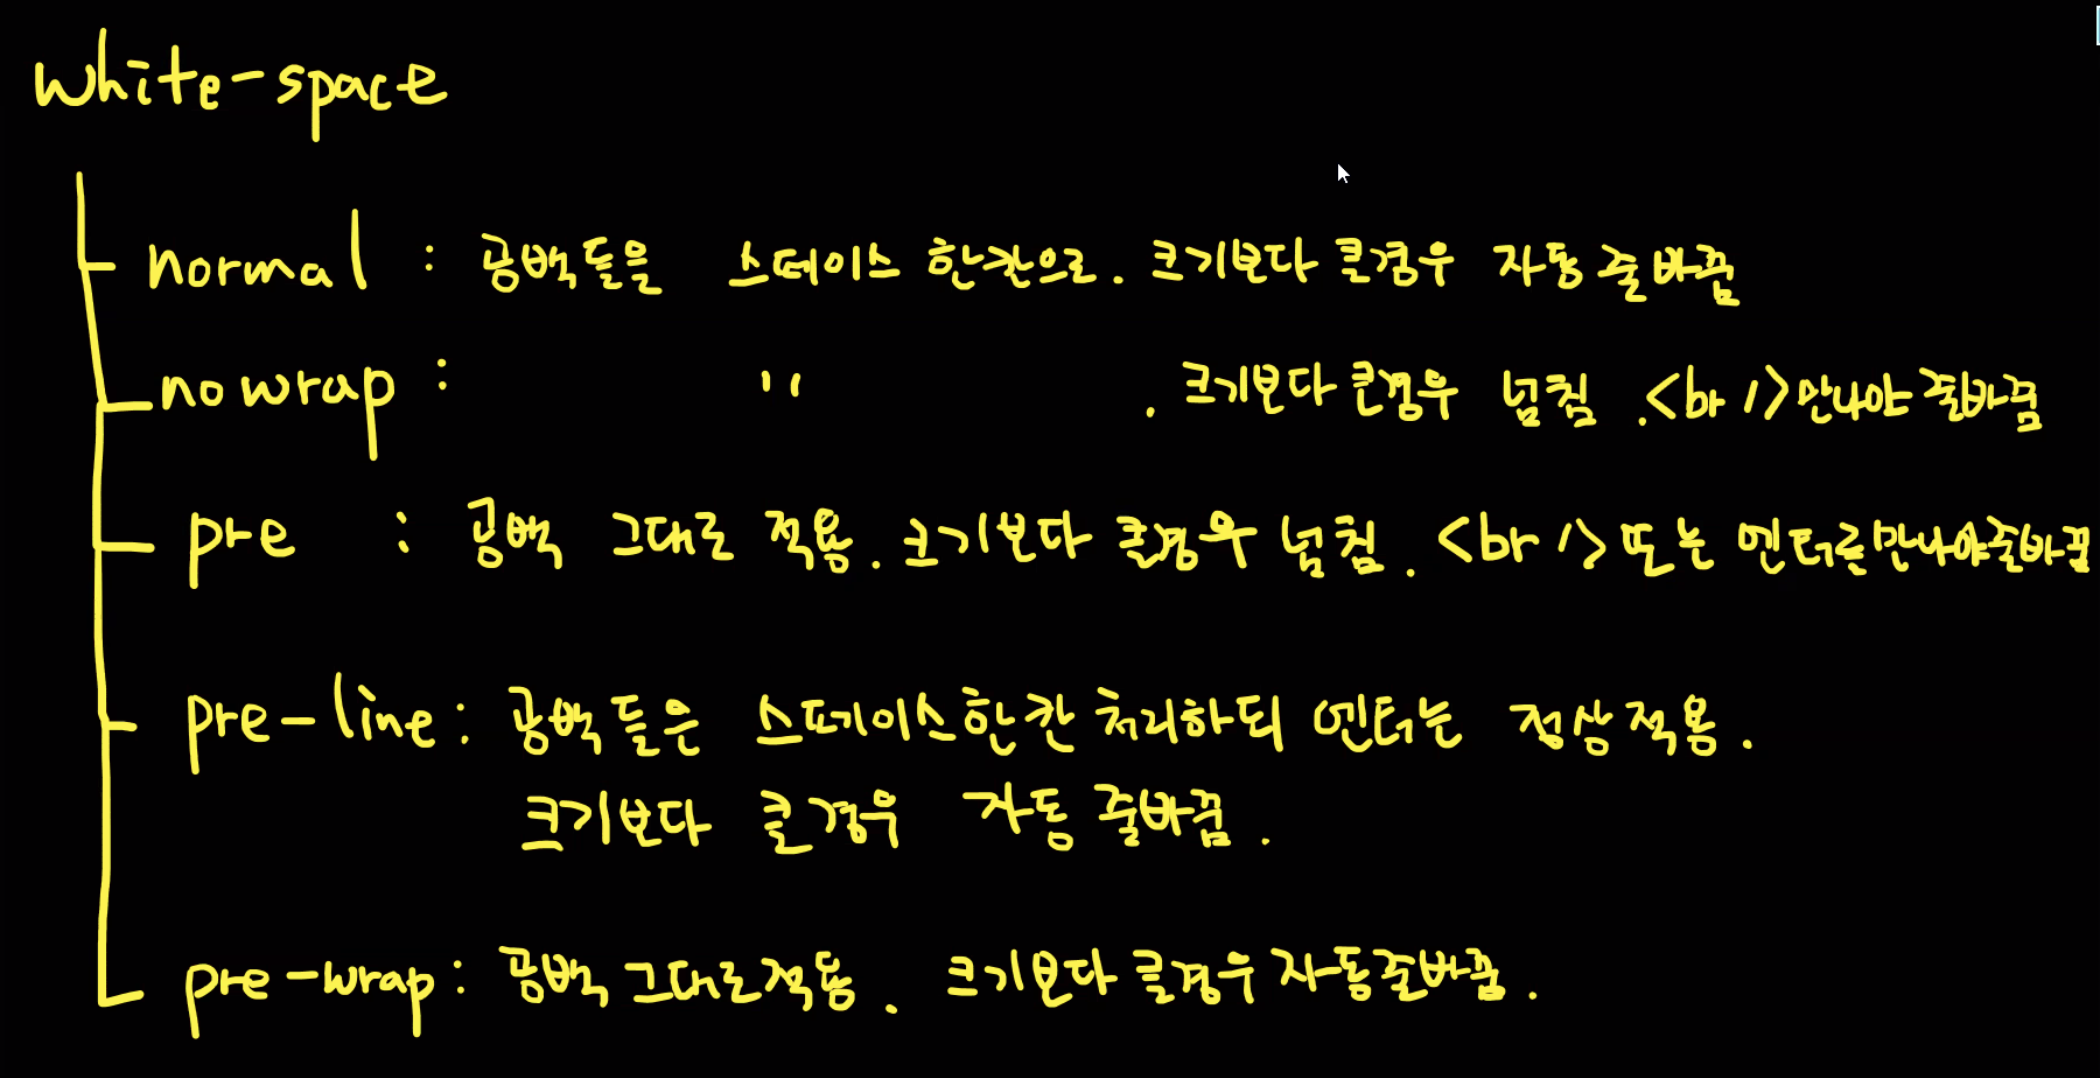 white-space
normal : 공백들을 스페이스 한칸으로. 크기보다 클경우 자동 줄바꿈
nowrap : " . 크기보다 클경우 넘침 .<br /> 만나야 줄바꿈
pre : 공백 그대로 적용. 크기보다 클경우 넘침. <br /> 또는 엔터를 만나야 줄바꿈
pre-line : 공백들은 스페이스한칸 처리하되 엔터는 정상적용.
크기보다 클경우 자동 줄바꿈.
pre-wrap : 공백 그대로적용. 크기보다 클경우 자동줄바꿈.